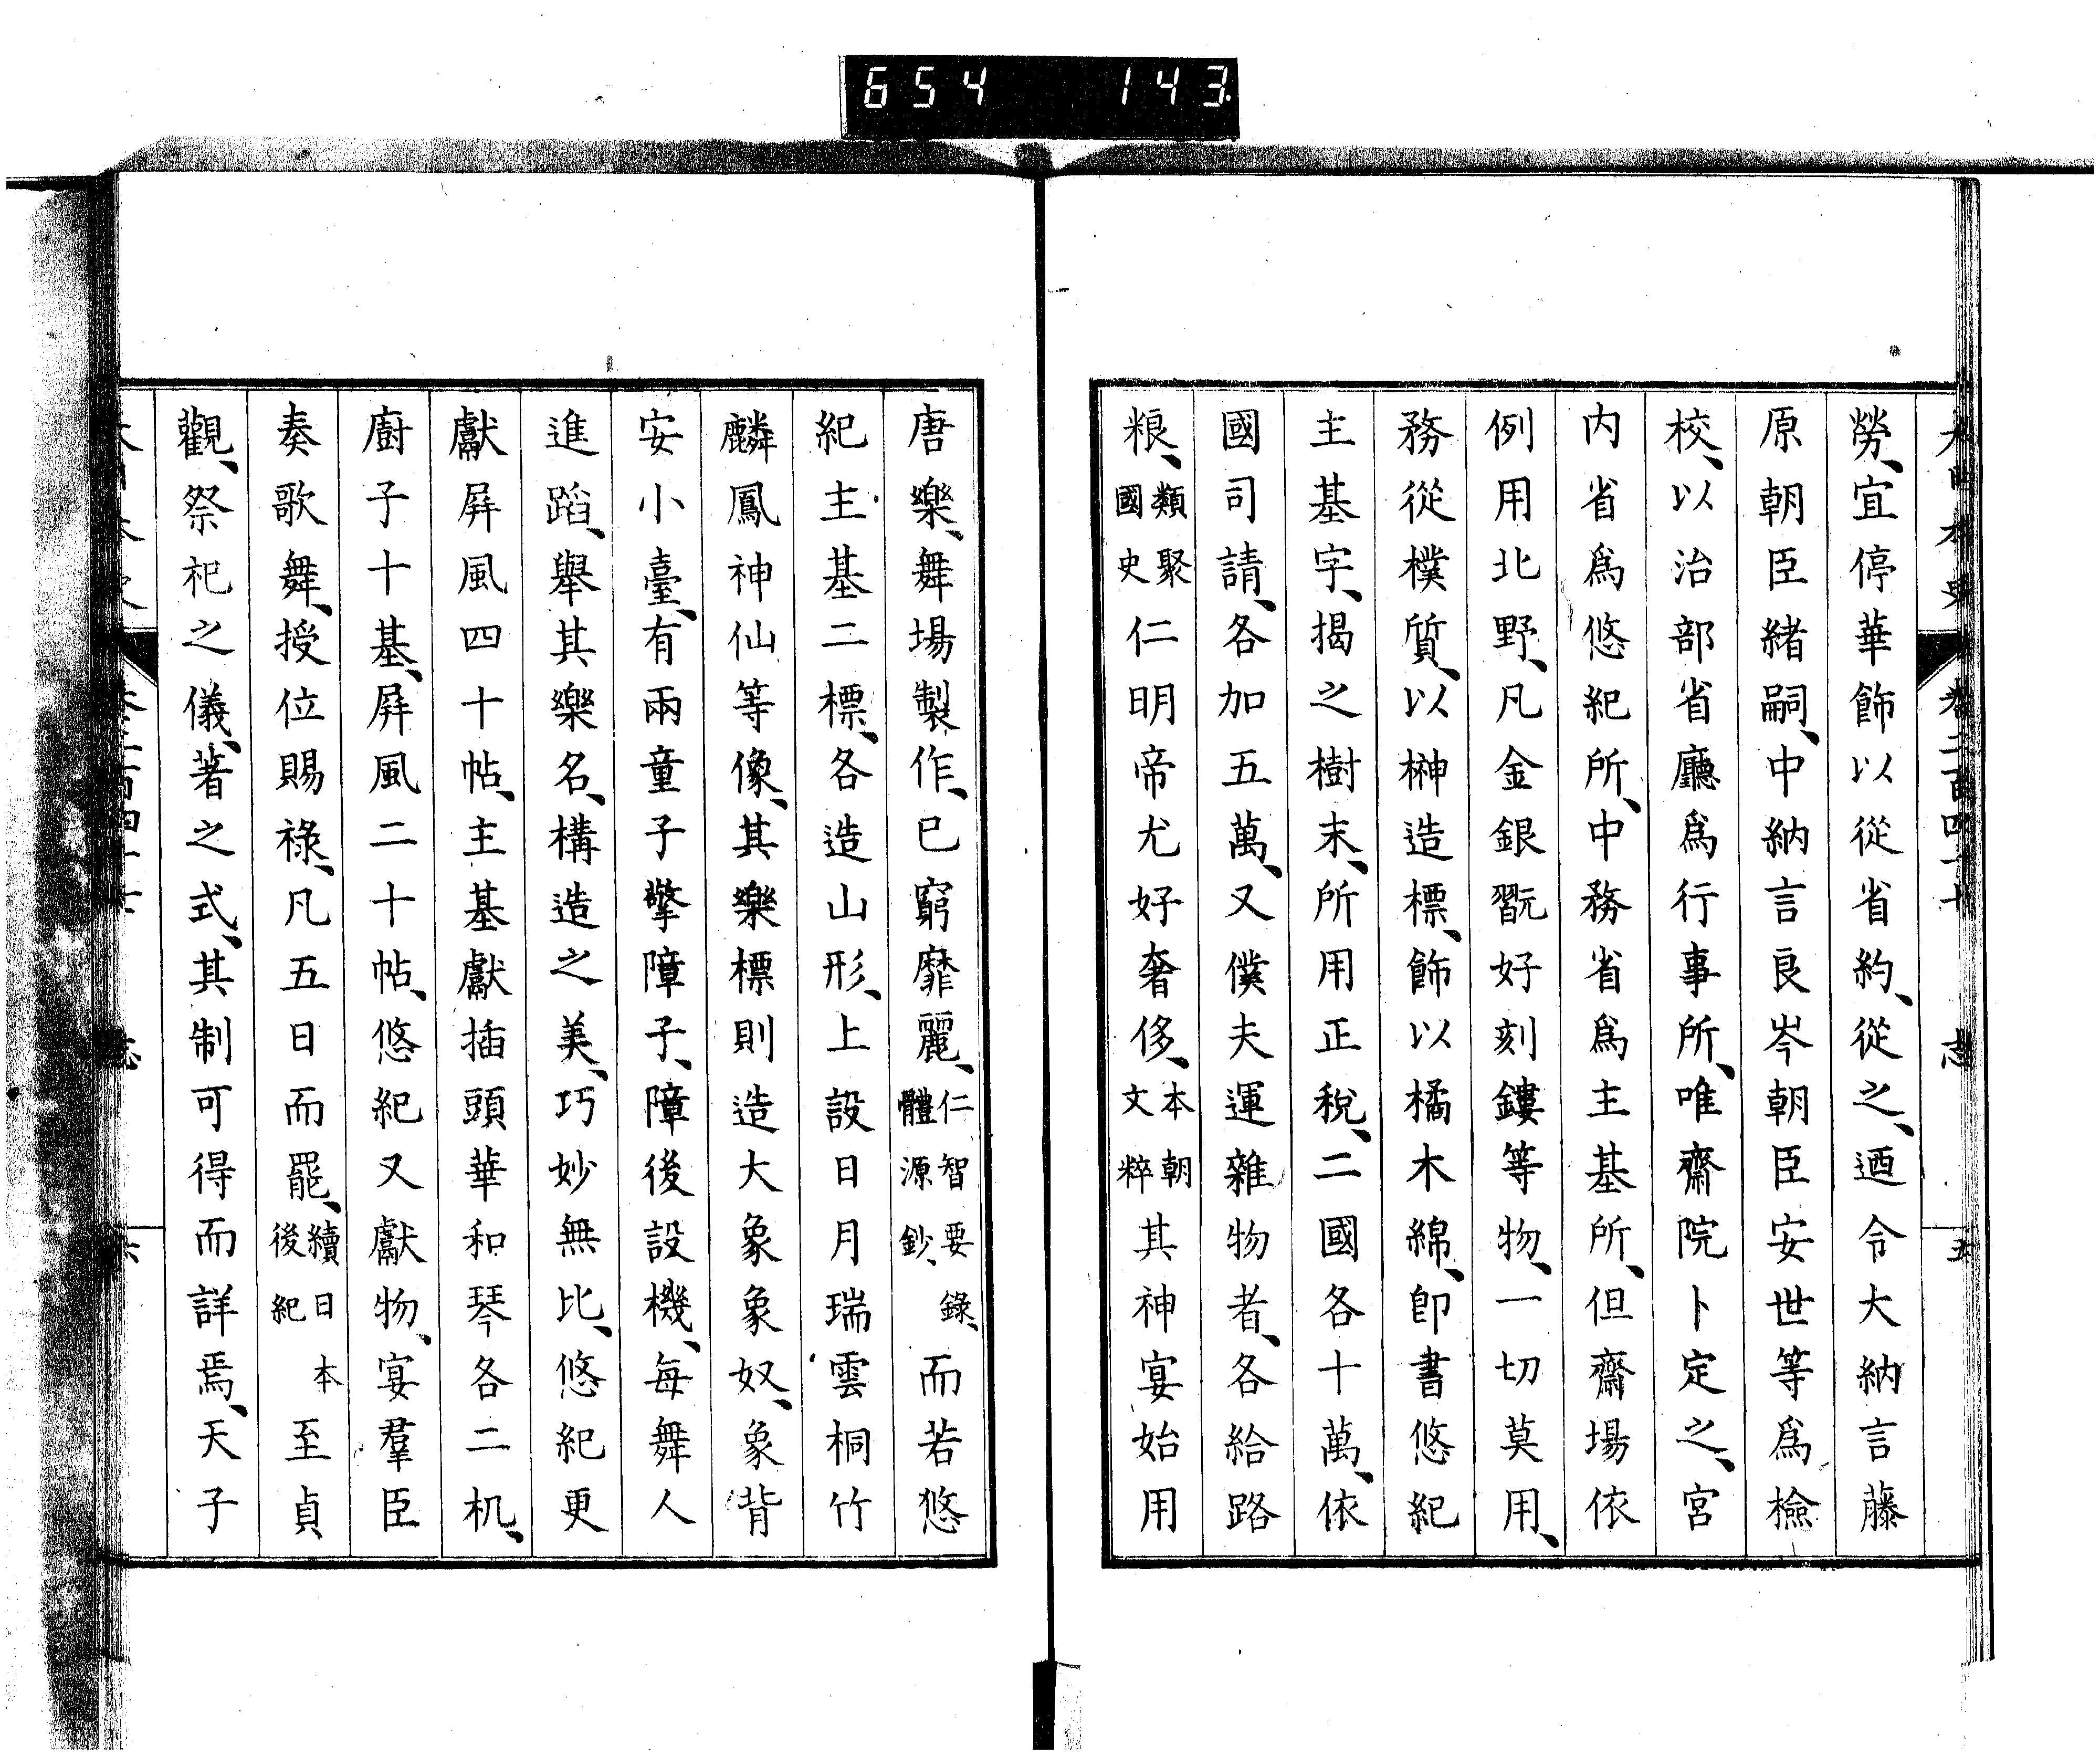 654 143
勞、宜停華飾以從省約、從之、迺令大納言藤
原朝臣緒嗣、中納言良岑朝臣安世等爲檢
校、以治部省廳爲行事所、唯齋院卜定之、宮
内省爲悠紀所、中務省爲主基所、但齋場依
例用北野、凡金銀翫好刻鏤等物、一切莫用、
務從樸質、以榊造標、飾以橘木綿、卽書悠紀
主基字、揭之樹末、所用正稅、二國各十萬、依
國司請、各加五萬、又僕夫運雜物者、各給路
粮、類聚國史仁明帝尤好奢侈、本朝文粹其神宴始用
唐樂、舞場製作、已窮靡麗、仁智要錄、體源鈔、而若悠
紀主基二標、各造山形、上設日月瑞雲桐竹
麟鳳神仙等像、其樂標則造大象象奴、象背
安小臺、有兩童子擎障子、障後設機、每舞人
進蹈、舉其樂名、構造之美、巧妙無比、悠紀更
獻屛風四十帖、主基獻插頭華和琴各二机、
廚子十基、屛風二十帖、悠紀又獻物、宴羣臣
奏歌舞、授位賜祿、凡五日而罷、續日本後紀至貞
觀、祭祀之儀、著之式、其制可得而詳焉、天子